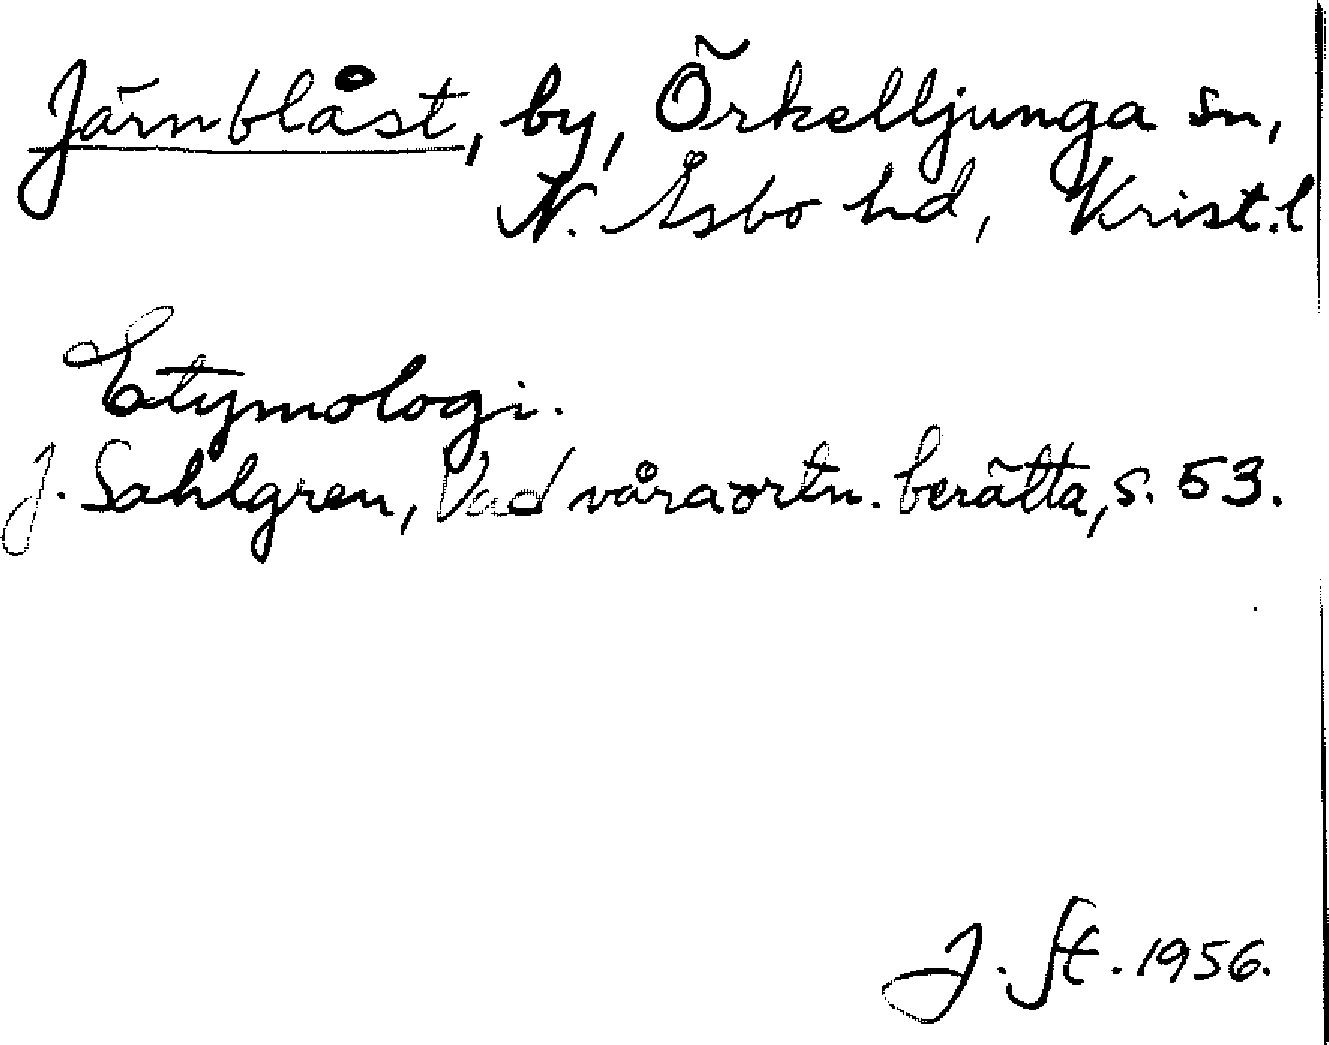 Järnblåst, by, Örkelljunga sn,
N. Åsbo hd, Krist.l
Etymologi.
J. Sahlgren, Vad våra ortn. berätta, s. 53.
J. St. 1956.